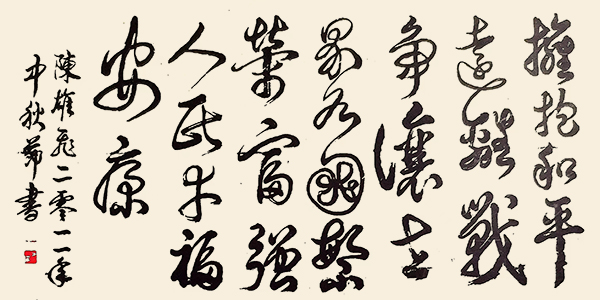 擁抱和平
遠離戰
爭讓世
界各國繁
榮富強
人民幸福
安康
陳雄飛二零一一年
中秋節書